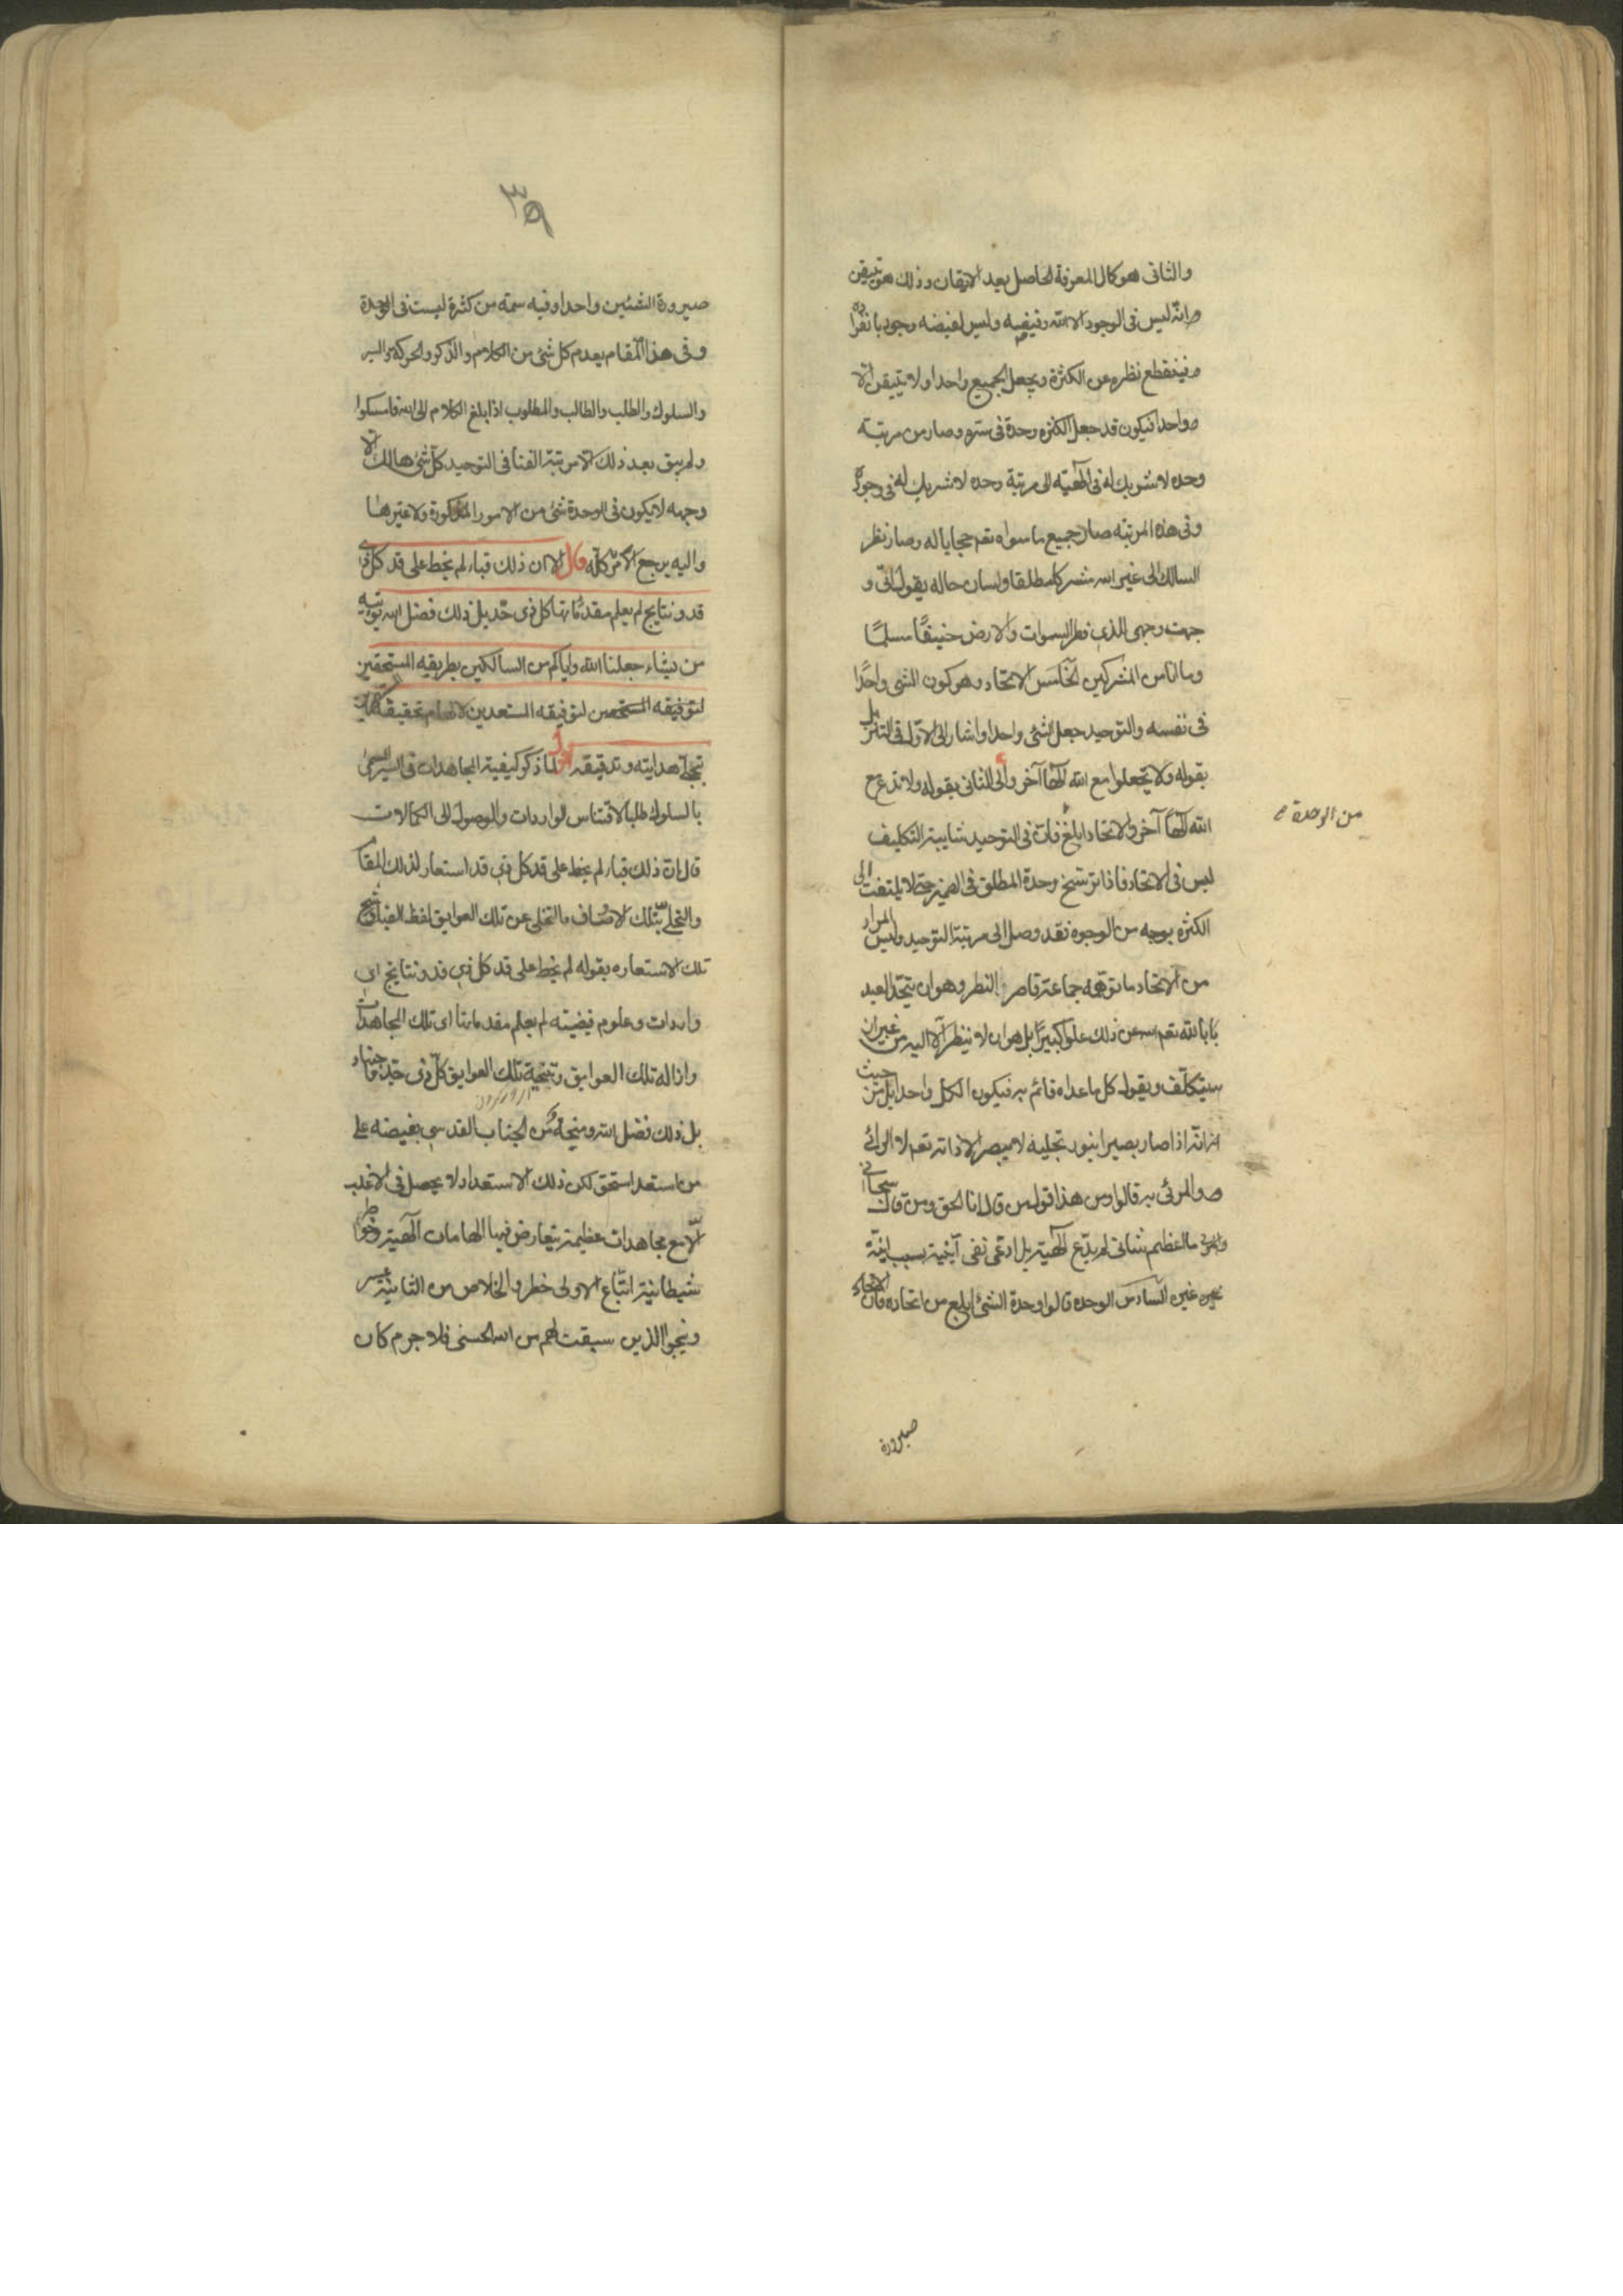 والثانى هو كمال المعرفة الحاصل بعد الايقان وذلك هو تيقن
انه ليس فى الوجود الا الله وفيضه وليس لفيضه وجود بانفراده
فينقطع نظره عن الكثرة ويجعل الجميع واحدا ولا يتيقن الا
واحدا فيكون قد جعل الكثرة وحدة فى سره وصار من مرتبة
وحده لا شريك له فى الهيته الى مرتبة وحده لا شريك له فى وجوده
وفى هذه المرتبه صار جميع ما سواه تعم حجابا له وصار نظر
السالك الى غير الله شركا مطلقا ولسان حاله يقول انى و
جهت وجهى الذى فطر السموات والارض حنيفًا مسلمًا
وما انا من المشركين الخامس الاتحاد وهو كون الشى واحدًا
فى نفسه والتوحيد جعل الشئ واحدا واشار الى الاول فى التنزيل
بقوله ولا تجعلوا مع الله الهًا آخر والى الثانى بقوله ولا تدع مع
الله الهًا آخر والاتحاد ابلغ فان فى التوحيد شايبة التكليف
من الوحدة
ليس فى الاتحاد فاذا ترسخ وحدة المطلق فى الضمير حتى لا يلتفت الى
الكثره بوجه من الوجوه فقد وصل الى مرتبة التوحيد وليس المراد
من الاتحاد ما توهمه جماعة قاصر النظر وهو ان يتحد العبد
بالله تعم عن ذلك علوا كبيرًا بل هو ان لا ينظر الا اليه من غير ان
يتكلف ويقول كل ما عداه قائم به فيكون الكل واحدا بل من حيث
انه اذا صار بصيرا بنور تجليه لا يبصر الا ذاته تعم لا الرائى
والمرئى به قالوا ومن هذا قول من قال انا الحق ومن قال سبحانى
ما اعظم شانى لم يدّع الهيته بل ادعى نفى آنيته بسبب انية
غيره السادس الوحده قالوا وحدة الشئ ابلغ من اتحاده فان الاتحاد
صيرورة
٣٩
صيرورة الشئين واحدا وفيه سمة من كثرة ليست فى الوحدة
وفى هذا المقام يعدم كل شئ من الكلام والذكر والحركة والسير
والسلوك والطلب والطالب والمطلوب اذا بلغ الكلام الى الله فامسكوا
ولم يبق بعد ذلك الا مرتبة الفنا فى التوحيد كل شئ هالك الا
وجهه لا يكون فى الوحدة شئ من الامور المذكورة ولا غيرها
واليه يرجع الامر كله قال الا ان ذلك قباء لم يخط على قد كل ذى
قد ونتايج لم يعلم مقدماتها كل ذى حد بل ذلك فضل الله يؤتيه
من يشاء جعلنا الله واياكم من السالكين بطريقه المستحقين
لتوفيقه المستعدين لالهام تحقيقه
بتجلى هدايته وتدقيقه اقول لما ذكر كيفية المجاهدات فى السير المسمى
بالسلوك طلبا لاقتناص الواردات والوصول الى الكمالات
قال ان ذلك قباء لم يخط على قد كل ذى قد استعار لذلك المقام
والتحلى بتلك الاوصاف والتخلى عن تلك العوايق لفظ القباء ورشح
تلك الاستعاره بقوله لم يخط على قد كل ذى قد ونتايج اى
واردات وعلوم فيضيته لم يعلم مقدماتها اى تلك المجاهدات
وازاله تلك العوايق وتنحية تلك العوايق كل ذى حد
بل ذلك فضل الله ومنحة من الجناب القدسى بفيضه على
من استعد استحق لكن ذلك الاستعداد لا يحصل فى الاغلب
الا مع مجاهدات عظيمة يتعارض فيها الهامات الهية وخواطر
شيطانية اتباع الاولى خطر والخلاص من الثانية عسر
وينجوا الذين سبقت لهم من الله الحسنى فلا جرم كان